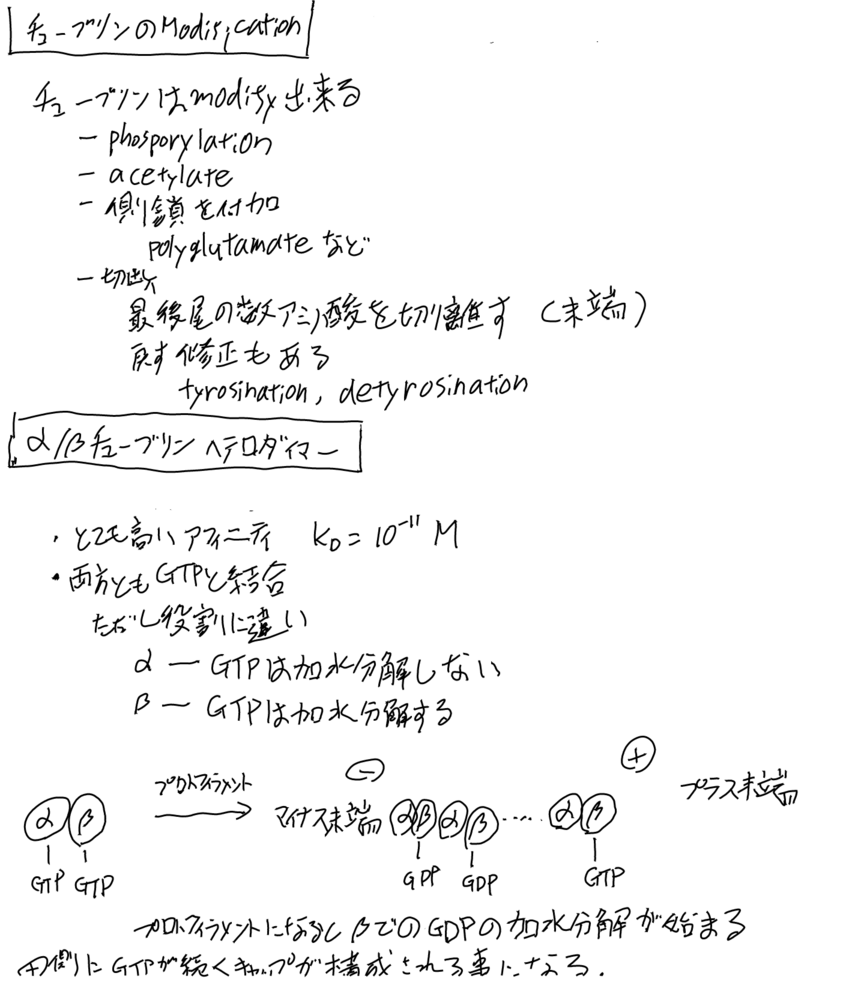 チューブリンのModification
チューブリンはmodify出来る
- phosporylation
- acetylate
- 側鎖を付加
polyglutamateなど
- 切断
最後尾の数アミノ酸を切り離す (末端)
戻す修正もある
tyrosination, detyrosination
α/βチューブリン ヘテロダイマー
・とても高いアフィニティ KD = 10⁻¹¹ M
・両方ともGTPと結合
ただし役割に違い
α ー GTPは加水分解しない
β ー GTPは加水分解する
プロトフィラメント
⊖
⊕
α β
マイナス末端 αβαβ ..... αβ
プラス末端
GTP GTP
GDP GDP GTP
プロトフィラメントになるとβでのGDPの加水分解が始まる
+側にGTPが続くキャップが構成される事になる.